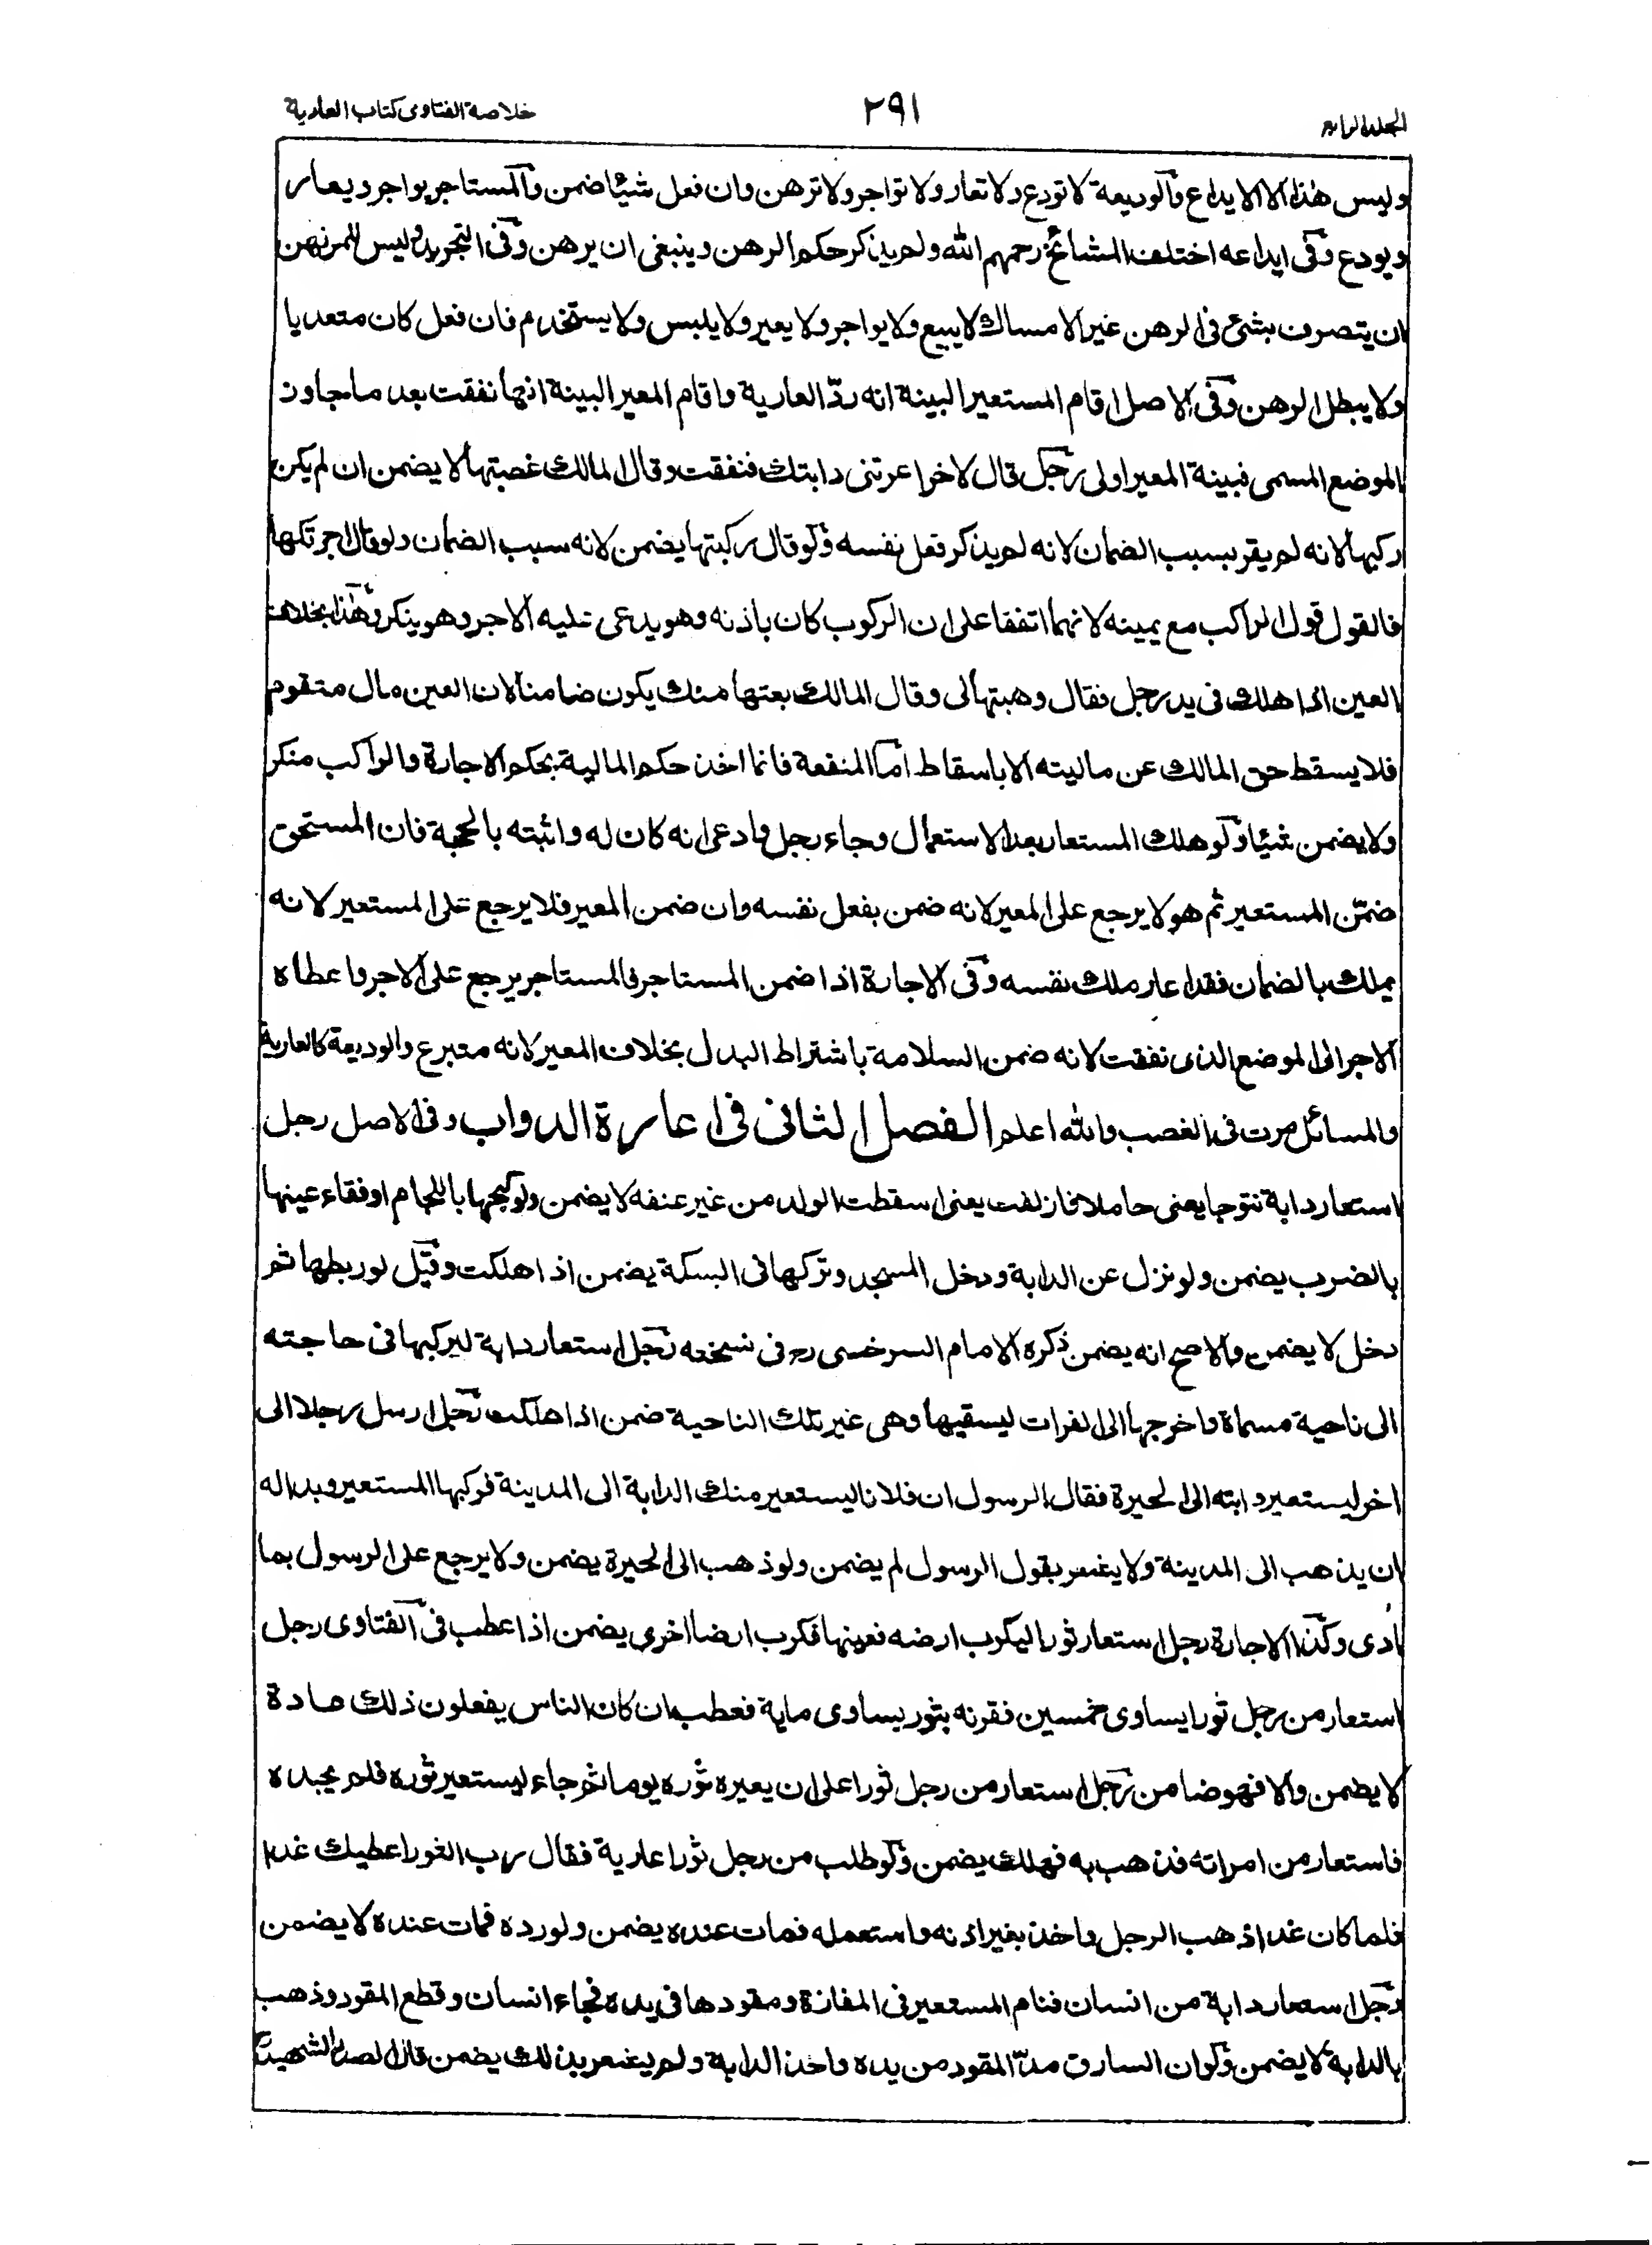 المجلد الرابع
٢٩١
خلاصة الفتاوى كتاب العارية
وليس هذا الا الايداع والوديعة لا تودع ولا تعار ولا تواجر ولا ترهن وان فعل شيئا ضمن والمستاجر يواجر ويعار
ويودع وفى ايداعه اختلف المشائخ رحمهم الله ولم يذكر حكم الرهن وينبغى ان يرهن وفى التجريد وليس للمرتهن
ان يتصرف بشئ فى الرهن غير الامساك لا يبيع ولا يواجر ولا يعير ولا يلبس ولا يستخدم فان فعل كان متعديا
ولا يبطل الرهن وفى الاصل اقام المستعير البينة انه ردّ العارية واقام المعير البينة انها نفقت بعد ما جاوز
الموضع المسمى فبينة المعير اولى رجل قال لاخر اعرتنى دابتك فنفقت وقال المالك غصبتها لا يضمن ان لم يكن
ركبها لانه لم يقر بسبب الضمان لانه لم يذكر فعل نفسه ولو قال ركبتها يضمن لانه سبب الضمان ولو قال اجرتكها
فالقول قول الراكب مع يمينه لانهما اتفقا على ان الركوب كان باذنه وهو يدعى عليه الاجر وهو ينكر وهذا بخلاف
العين اذا هلك فى يد رجل فقال وهبتها لى وقال المالك بعتها منك يكون ضامنا لان العين مال متقوم
فلا يسقط حق المالك عن ماليته الا باسقاط اما المنفعة فانما اخذ حكم المالية بحكم الاجارة والراكب منكر
ولا يضمن شيئا ولو هلك المستعار بعد الاستعمال وجاء رجل وادعى انه كان له واثبته بالحجة فان المستحق
ضمّن المستعير ثم هو لا يرجع على المعير لانه ضمن بفعل نفسه وان ضمن المعير فلا يرجع على المستعير لانه
يملك بالضمان فقد اعار ملك نفسه وفى الاجارة اذا ضمن المستاجر فالمستاجر يرجع على الاجر واعطاه
الاجر الى الموضع الذى نفقت لانه ضمن السلامة باشتراط البدل بخلاف المعير لانه متبرع والوديعة كالعارية
والمسائل مرت فى الغصب والله اعلم الفصل الثانى فى اعارة الدواب وفى الاصل رجل
استعار دابة نتوجا يعنى حاملا فازلفت يعنى اسقطت الولد من غير عنفه لا يضمن ولو كبحها باللجام او فقاء عينها
بالضرب يضمن ولو نزل عن الدابة ودخل المسجد وتركها فى السكة يضمن اذا هلكت وقيل لو ربطها ثم
دخل لا يضمن والاصح انه يضمن ذكره الامام السرخسى رح فى نسخته رجل استعار دابة ليركبها فى حاجته
الى ناحية مسماة واخرجها الى الفرات ليسقيها وهى غير تلك الناحية ضمن اذا هلكت رجل ارسل رجلا الى
اخر ليستعير دابته الى الحيرة فقال الرسول ان فلانا ليستعير منك الدابة الى المدينة فركبها المستعير وبدا له
ان يذهب الى المدينة ولا يشعر بقول الرسول لم يضمن ولو ذهب الى الحيرة يضمن ولا يرجع على الرسول بما
ادى وكذا الاجارة رجل استعار ثورا ليكرب ارضه فعينها فكرب ارضا اخرى يضمن اذا عطب فى الفتاوى رجل
استعار من رجل ثورا يساوى خمسين فقرنه بثور يساوى ماية فعطب ان كان الناس يفعلون ذلك عادة
لا يضمن والا فهو ضامن رجل استعار من رجل ثورا على ان يعيره ثوره يوما ثم جاء ليستعير ثوره فلم يجده
فاستعار من امراته فذهب به فهلك يضمن ولو طلب من رجل ثورا عارية فقال رب الثور اعطيك غدا
فلما كان غدا ذهب الرجل واخذ بغير اذنه واستعمله فمات عنده يضمن ولو رده فمات عنده لا يضمن
رجل استعار دابة من انسان فنام المستعير فى المفازة ومقودها فى يده فجاء انسان وقطع المقود وذهب
بالدابة لا يضمن ولو ان السارق مدّ المقود من يده واخذ الدابة ولم يشعر بذلك يضمن قال الصدر الشهيد